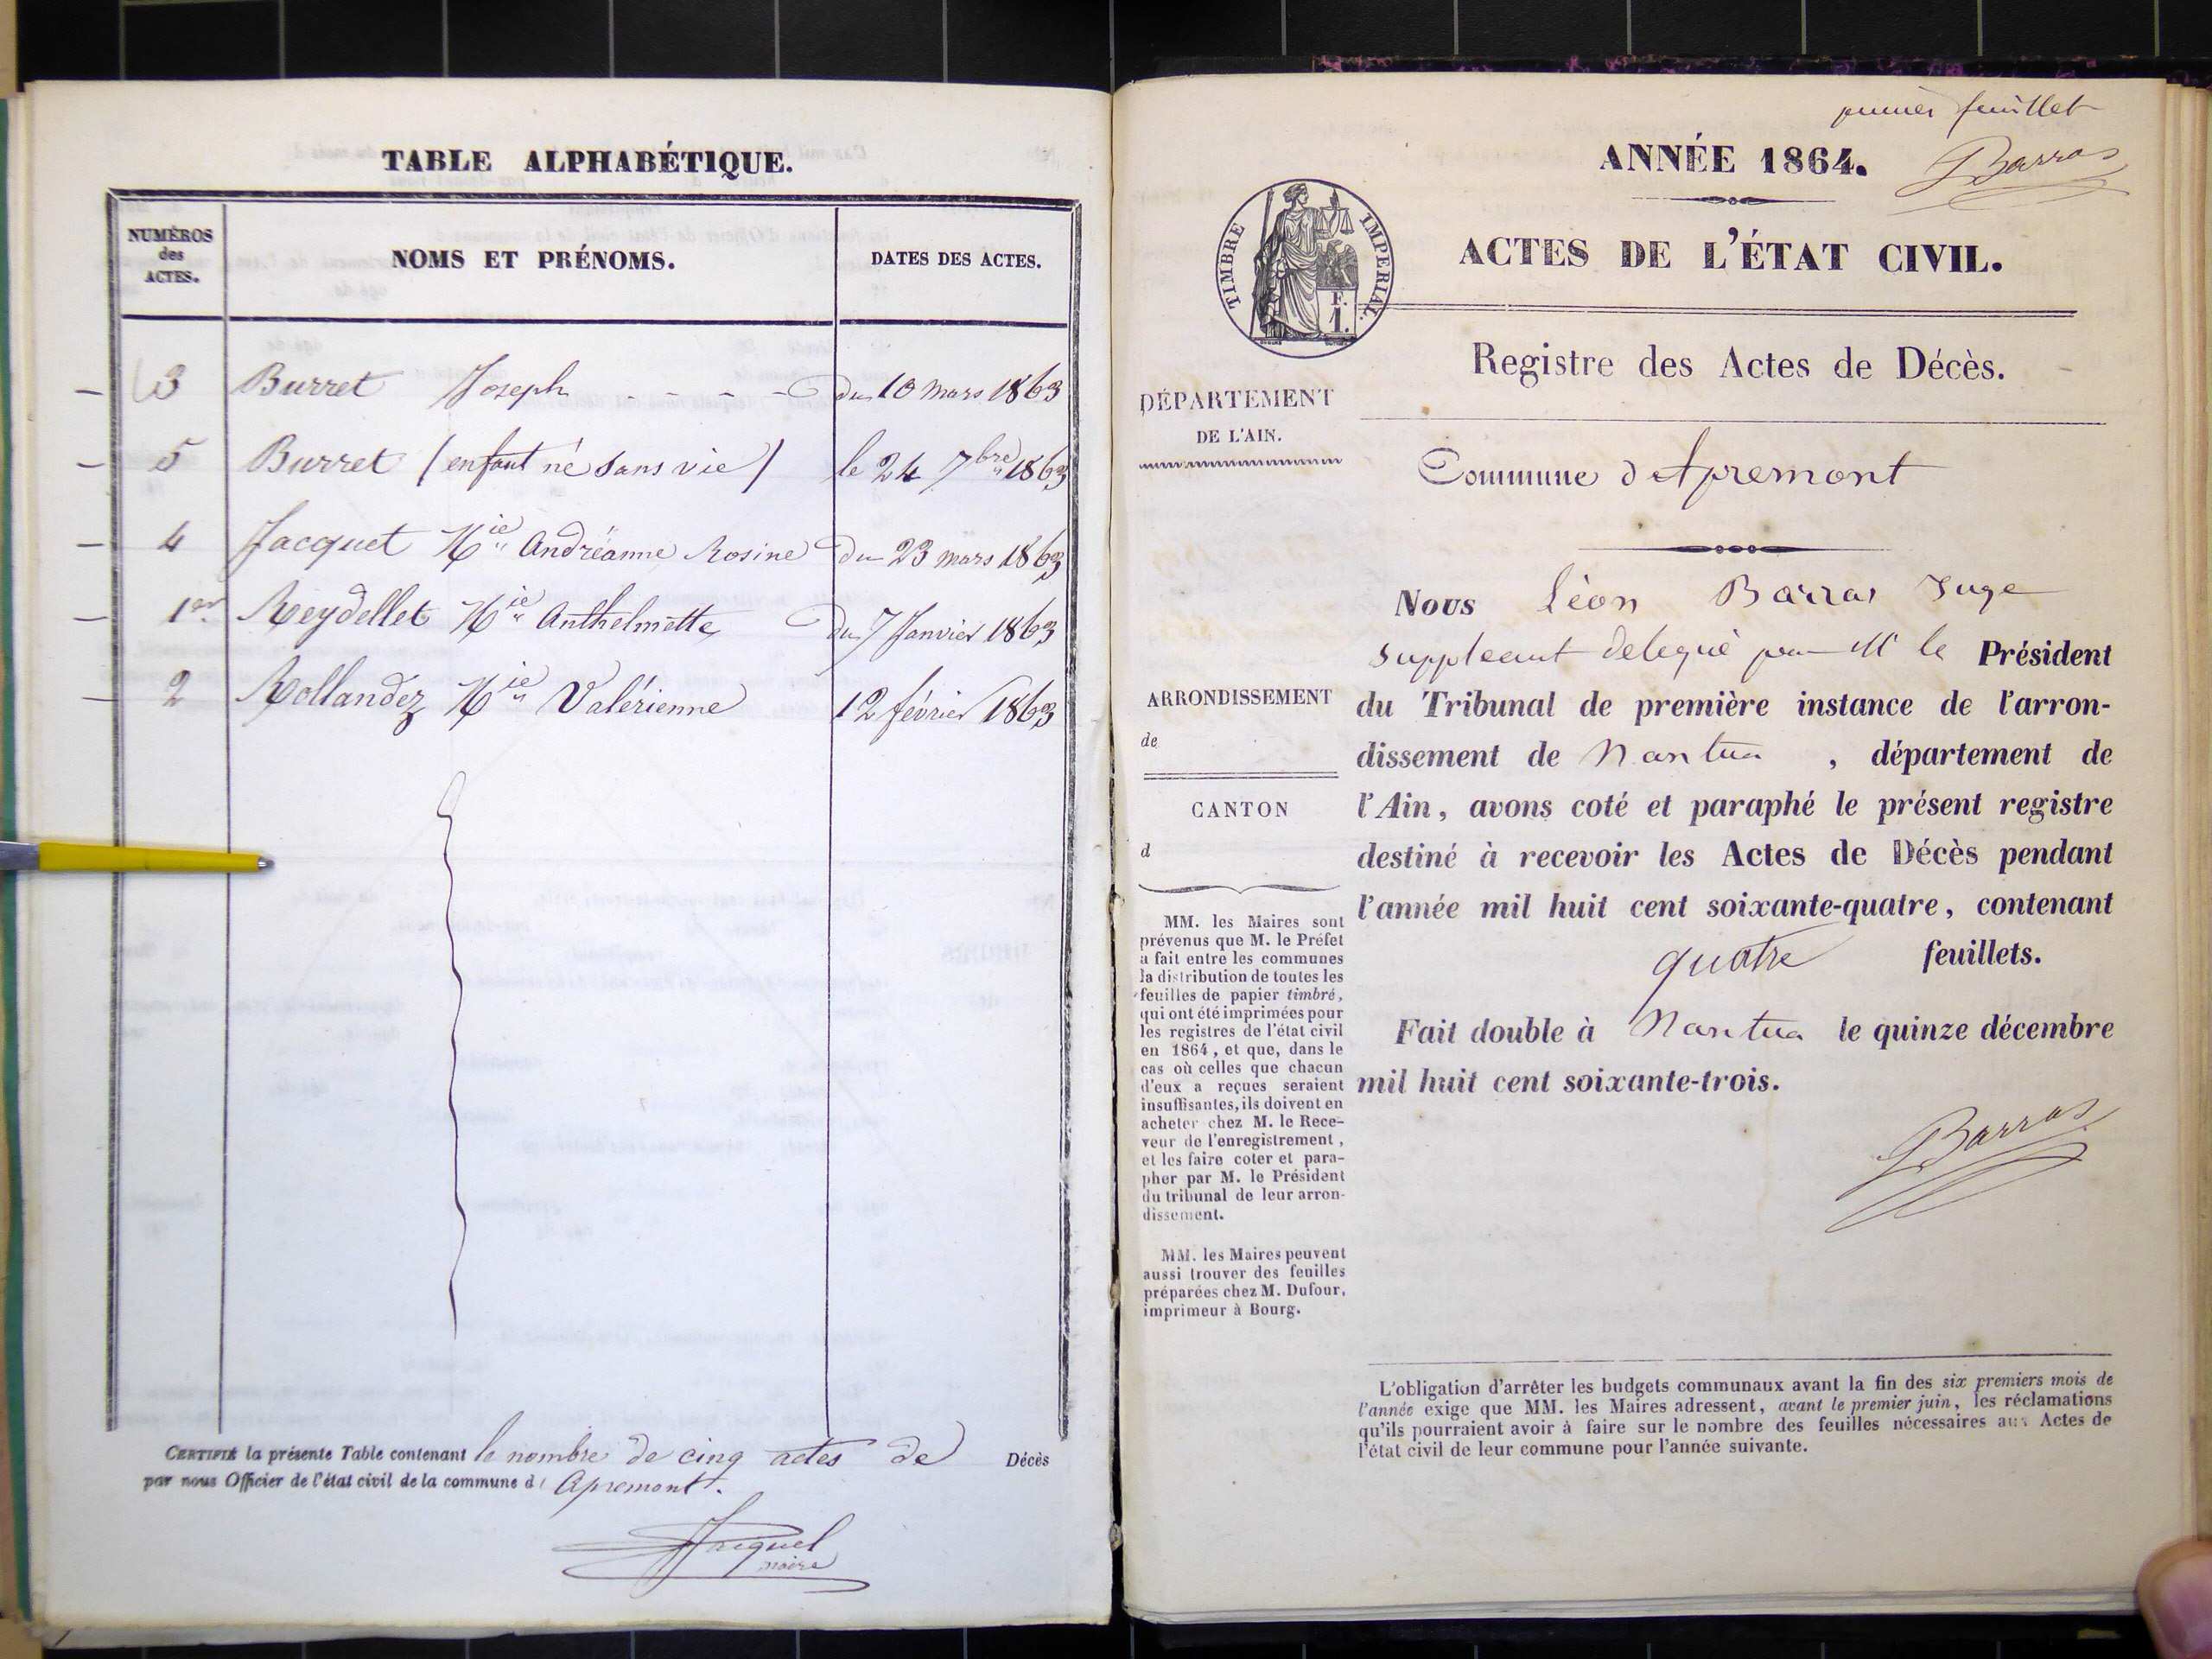 TABLE ALPHABÉTIQUE.
NUMÉROS
des
ACTES.
NOMS ET PRÉNOMS.
DATES DES ACTES.
3 Burret Joseph - - - - du 10 mars 1863
5 Burret (enfant né sans vie) le 24 7bre 1863
4 Jacquet Mie Andréanne Rosine du 23 mars 1863
1er Reydellet Mie Anthelmette du 7 Janvier 1863
2 Rollandez Mie Valérienne 12 février 1863
CERTIFIÉ la présente Table contenant le nombre de cinq actes de Décès
par nous Officier de l'état civil de la commune d' Apremont.
maire
premier feuillet
ANNÉE 1864.
Barras
TIMBRE IMPERIAL.
F.
1.
ACTES DE L'ÉTAT CIVIL.
Registre des Actes de Décès.
DÉPARTEMENT
DE L'AIN.
Commune d'Apremont
Nous Léon Barras Juge
suppleant delegué par M le Président
du Tribunal de première instance de l'arron-
dissement de Nantua , département de
l'Ain, avons coté et paraphé le présent registre
destiné à recevoir les Actes de Décès pendant
l'année mil huit cent soixante-quatre, contenant
quatre feuillets.
Fait double à Nantua le quinze décembre
mil huit cent soixante-trois.
Barras
ARRONDISSEMENT
de
CANTON
d
MM. les Maires sont
prévenus que M. le Préfet
a fait entre les communes
la distribution de toutes les
feuilles de papier timbré,
qui ont été imprimées pour
les registres de l'état civil
en 1864, et que, dans le
cas où celles que chacun
d'eux a reçues seraient
insuffisantes, ils doivent en
acheter chez M. le Rece-
veur de l'enregistrement,
et les faire coter et para-
pher par M. le Président
du tribunal de leur arron-
dissement.
MM. les Maires peuvent
aussi trouver des feuilles
préparées chez M. Dufour,
imprimeur à Bourg.
L'obligation d'arrêter les budgets communaux avant la fin des six premiers mois de
l'année exige que MM. les Maires adressent, avant le premier juin, les réclamations
qu'ils pourraient avoir à faire sur le nombre des feuilles nécessaires aux Actes de
l'état civil de leur commune pour l'année suivante.